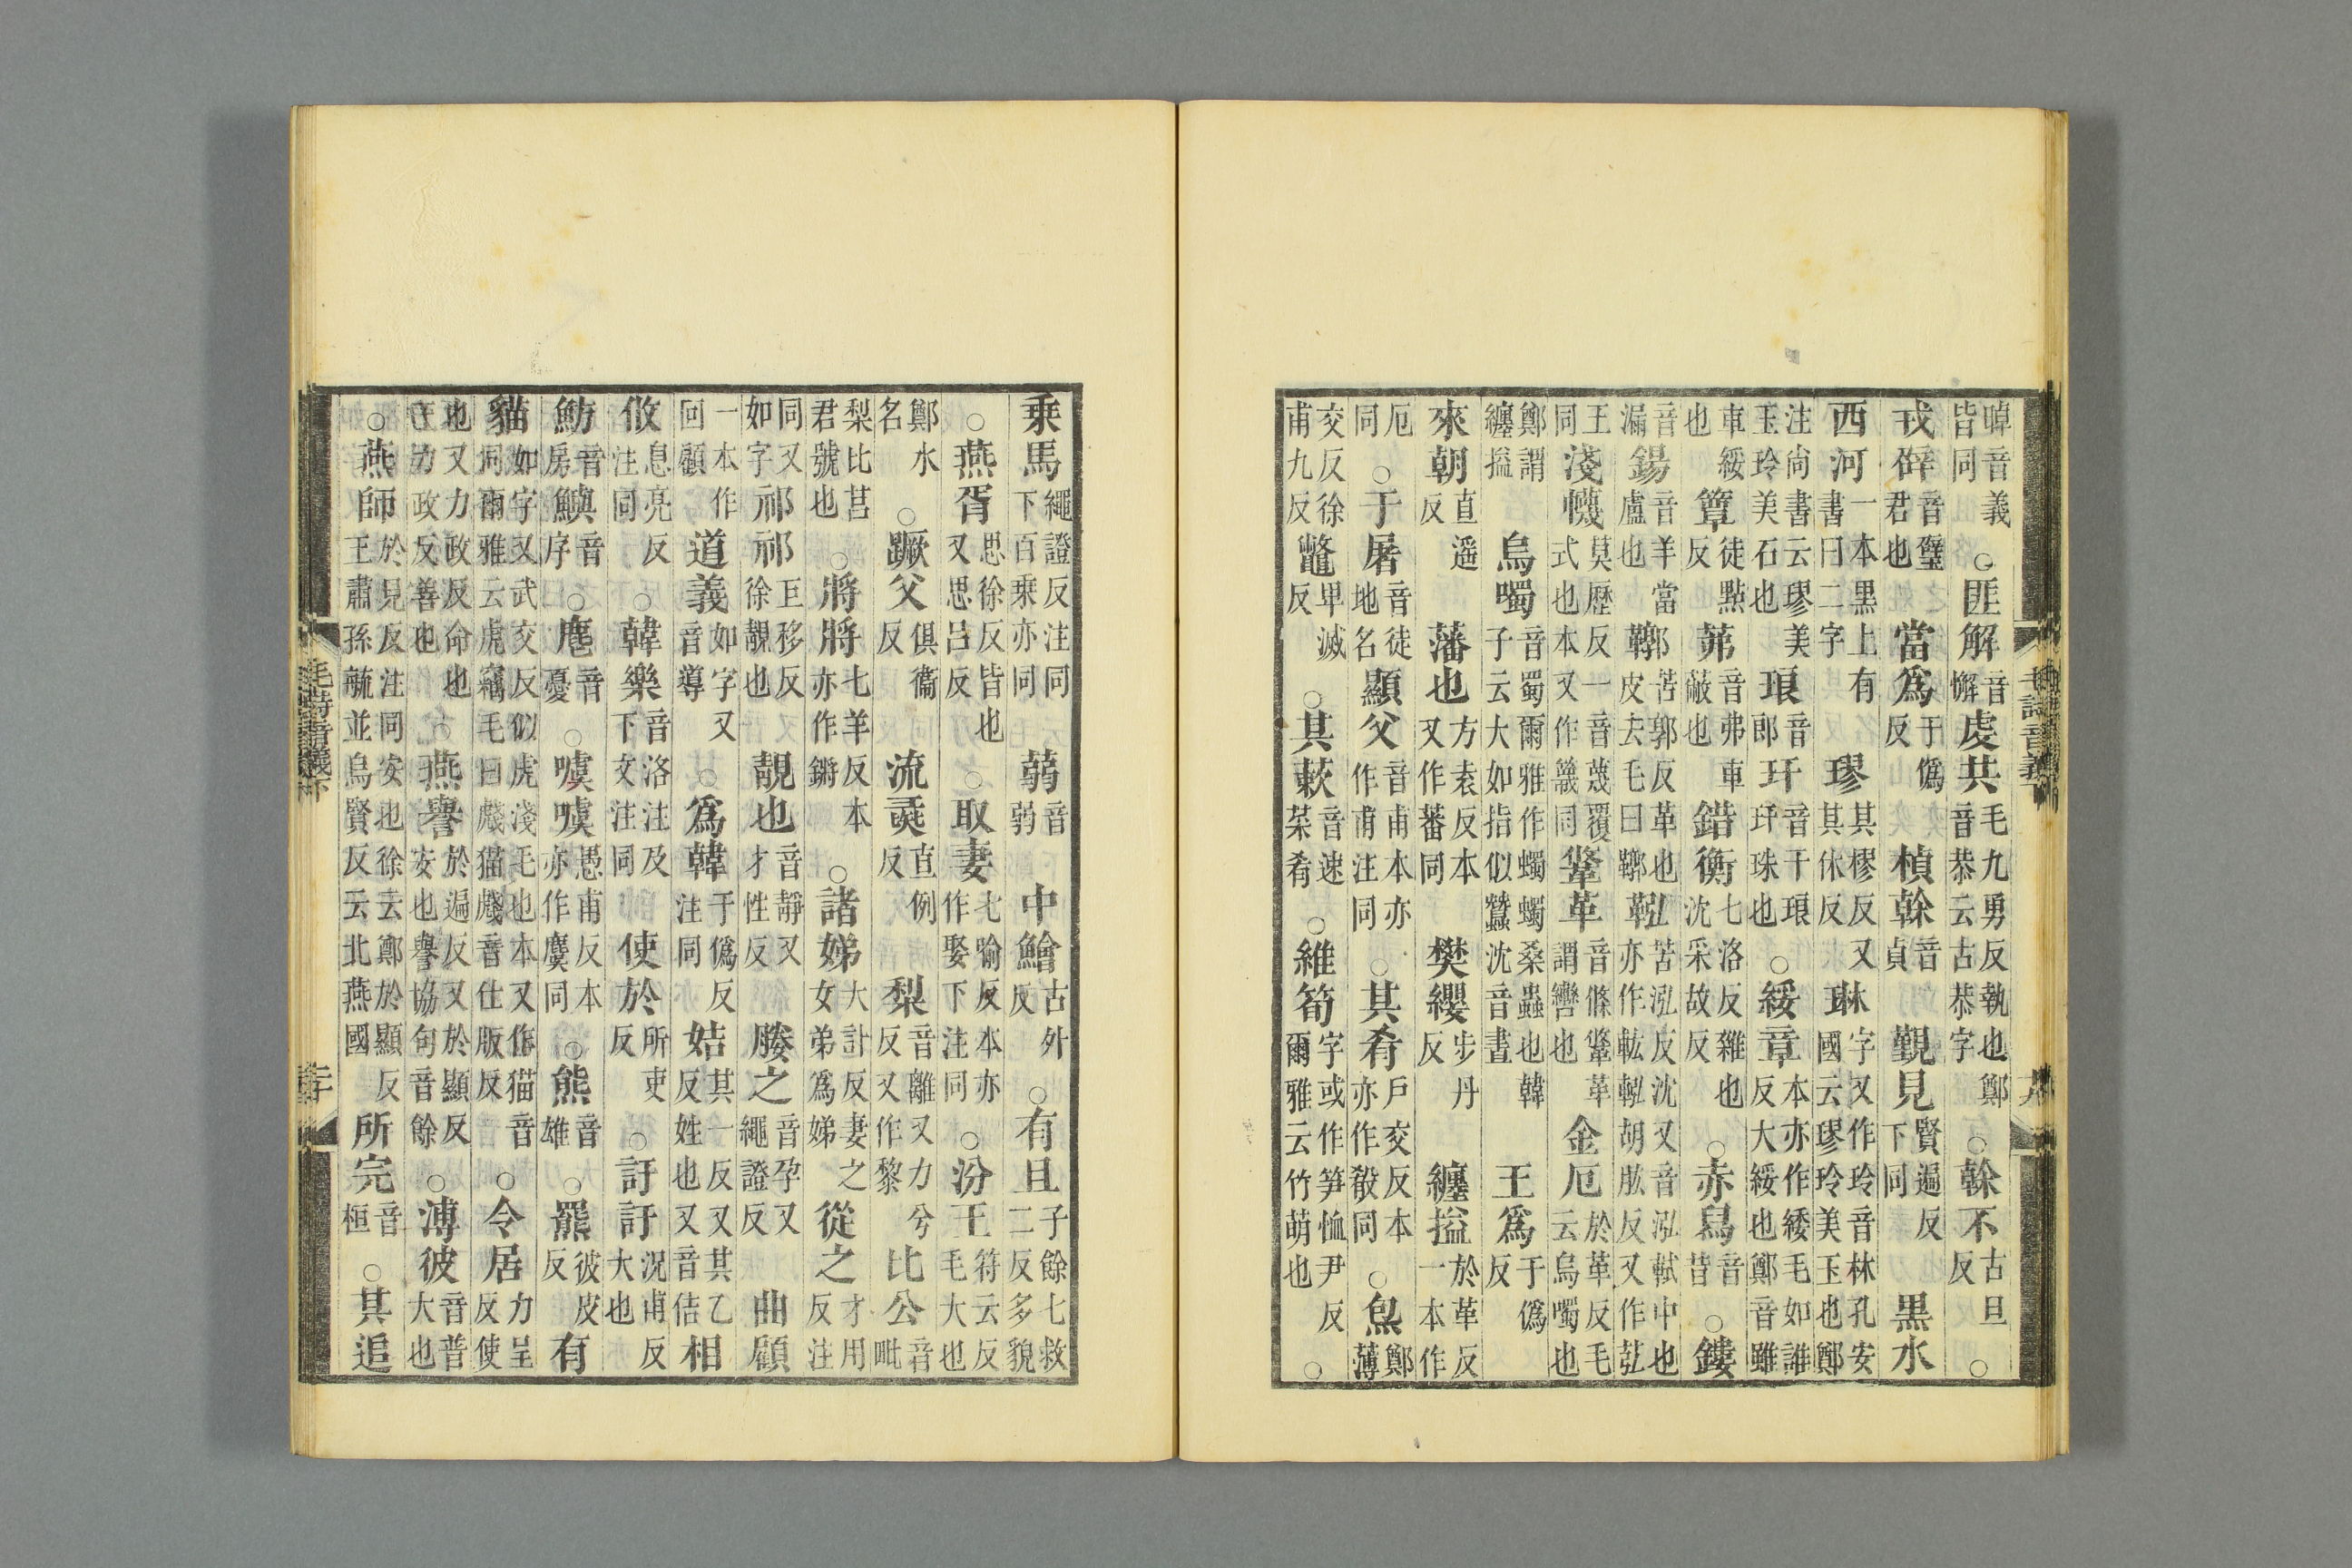 晫音義皆同○匪解音懈虔共毛九勇反執也鄭音恭云古恭字○榦不古旦反○
戎辟音璧君也當爲于僞反楨榦音貞覲見賢遍反下同黒水
西河一本黒上有書曰二字璆其樛反又其休反琳字又作玲音林孔安國云璆玲美玉也鄭
注尚書云璆美玉玲美石也琅音郎玕音干琅玕珠也○綏章本亦作緌毛如誰反大綏也鄭音雖
車綏也簟徒點反茀音弗車蔽也錯衡七洛反雜也沈采故反○赤舄音昔○鏤
音漏鍚音羊當盧也鞹苦郭反革也郭皮去毛曰鞹鞃苦泓反沈又音泓軾中也亦作軚䡏胡肱反又作㢬
王同淺幭莫歷反一音蔑覆式也本又作簚同鞗革音條鞗革謂轡也金厄於革反毛云烏噣也
鄭謂纏搤烏噣音蜀爾雅作蠋蠋桑蟲也韓子云大如指似蠶沈音晝王爲于僞反
來朝直遥反藩也方袁反本又作蕃同樊纓步丹反纏搤於革反一本作
厄同○于屠音徒地名顯父音甫本亦作甫注同○其肴戶交反本亦作殽同○炰鄭薄
交反徐甫九反鼈卑滅反○其蔌音速菜肴○維筍字或作笋恤尹反爾雅云竹萌也○
毛詩音義下
十九
乗馬繩證反注同下百乗亦同蒻音弱中鱠古外反○有且子餘七救二反多貌
○燕胥思徐反皆也又思呂反○取妻七喻反本亦作娶下注同○汾王符云反毛大也
鄭水名○蹶父俱衞反流彘直例反梨音離又力兮反又作黎比公音毗
梨比莒君號也○將將七羊反本亦作鏘○諸娣大計反妻之女弟爲娣從之才用反注
同又如字祁祁巨移反徐靚也靚也音靜又才性反媵之音孕又繩證反曲顧
一本作回顧道義如字又音導○爲韓于僞反注同姞其一反又其乙反姓也又音佶相
攸息亮反注同○韓樂音洛注及下文注同使於所吏反○訏訏況甫反大也
魴音房鱮音序○麀音憂○噳噳愚甫反本亦作麌同○熊音雄○羆彼皮反有
貓如字又武交反似虎淺毛也本又作猫音同爾雅云虎竊毛曰虦猫虦音仕版反○令居力呈反使
也又力政反命也王力政反善也○燕譽於遍反又於顯反安也譽協句音餘○溥彼音普大也
○燕師於見反注同安也徐云鄭於顯反王肅孫毓並烏賢反云北燕國所完音桓○其追
毛詩音義下
二十